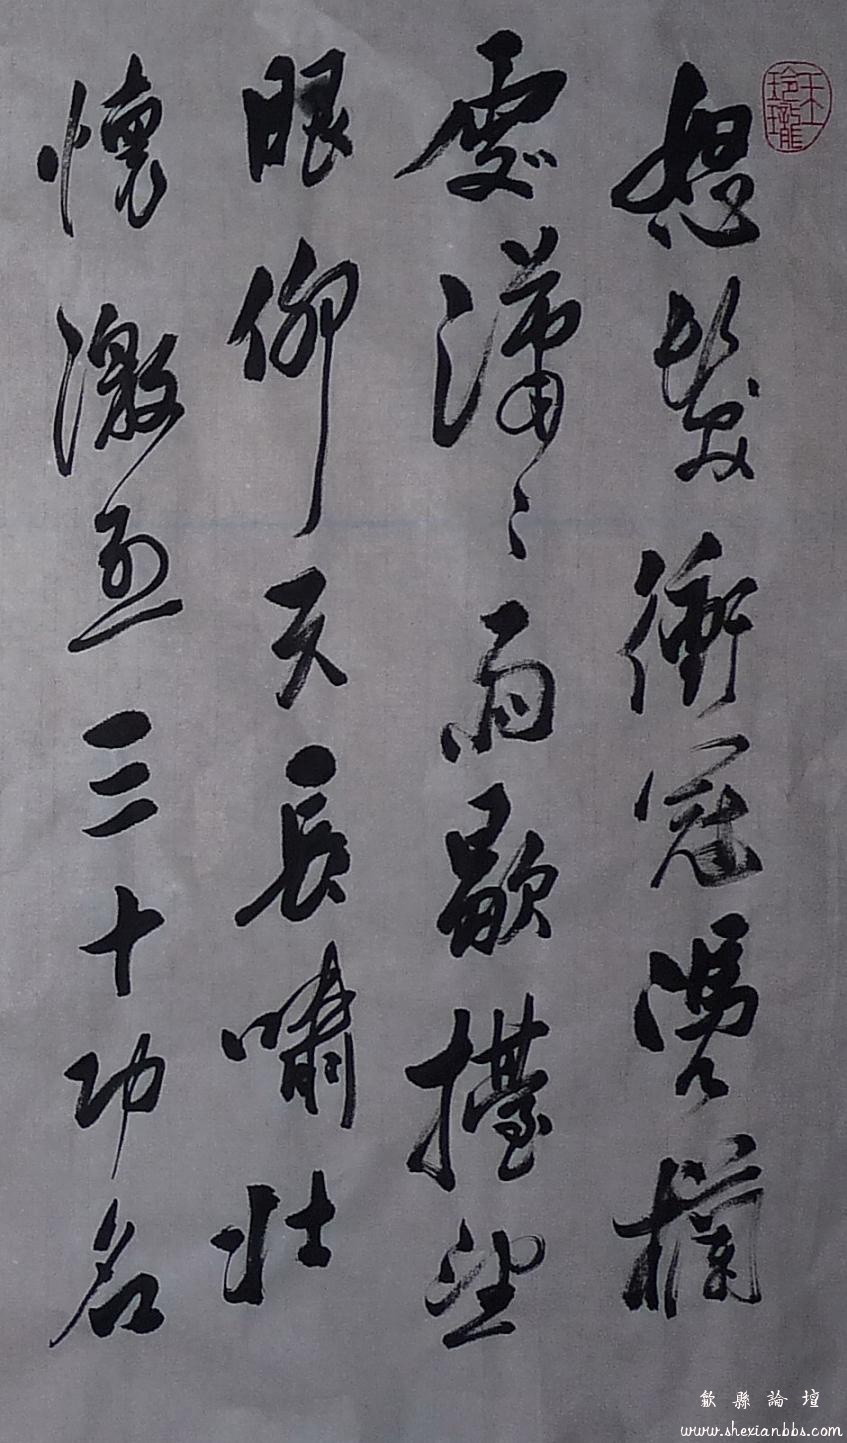 玲瓏
怒髮衝冠凴欄
處瀟〻雨歇擡望
眼仰天長嘯壯
懷激烈三十功名
歙縣論壇
www.shexianbbs.com